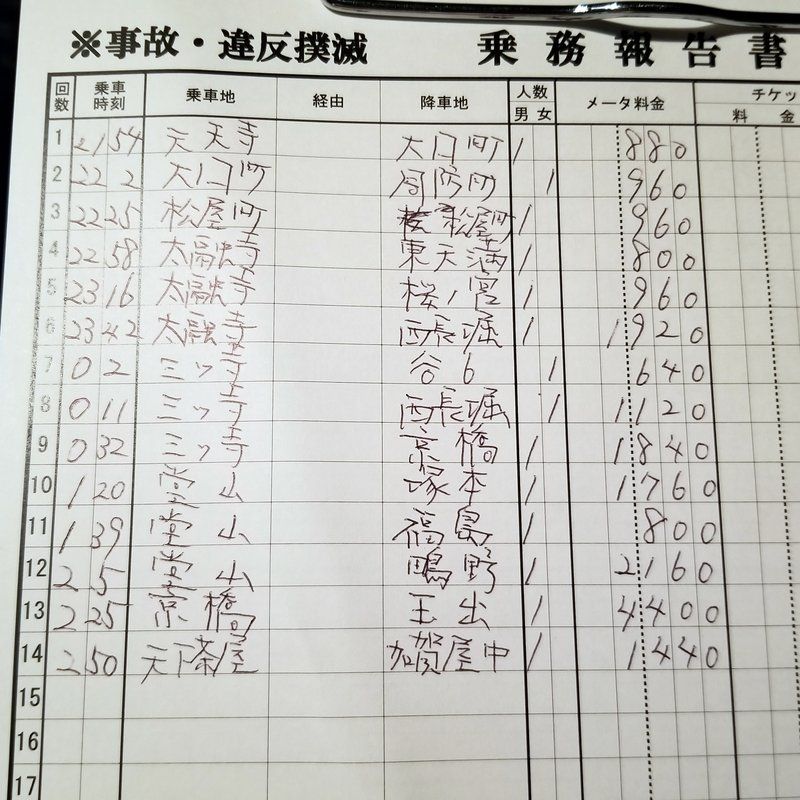 ※事故・違反撲滅 乗務報告書
回数 乗車時刻 乗車地 経由 降車地 人数 男 女 メータ料金 チケッ 料 金
1 21 54 天天寺 大口町 1 880
2 22 2 大口町 周防町 1 960
3 22 25 松屋町 松屋町 1 960
4 22 58 太融寺 東天満 1 800
5 23 16 太融寺 桜ノ宮 1 960
6 23 42 太融寺 西長堀 1 1920
7 0 2 三ッ寺 谷6 1 640
8 0 11 三ッ寺 西長堀 1 1120
9 0 32 三ッ寺 京橋 1 1840
10 1 20 堂山 塚本 1 1760
11 1 39 堂山 福島 1 800
12 2 5 堂山 鴫野 1 2160
13 2 25 京橋 玉出 1 4400
14 2 50 天下茶屋 加賀屋中 1 1440
15
16
17